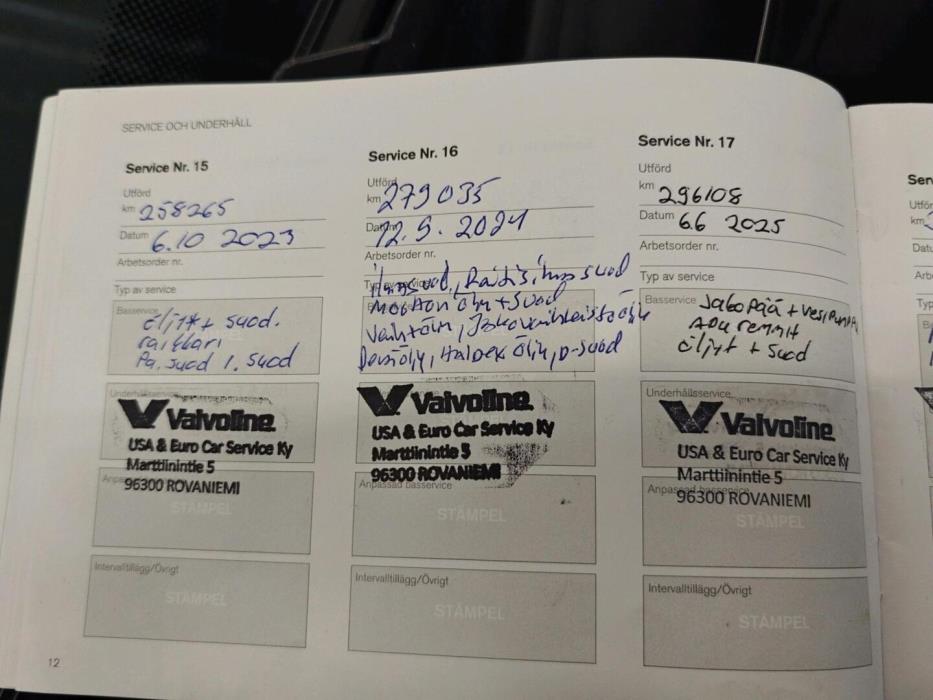 SERVICE OCH UNDERHÅLL
Service Nr. 15
Utförd
km 258265
Datum 6.10 2023
Arbetsorder nr.
Typ av service
Basservice
öljyt + suod.
raikkari
Pa. suod 1. suod
Underhållsservice
Valvoline
USA & Euro Car Service Ky
Marttiinintie 5
96300 ROVANIEMI
STÄMPEL
Intervalltillägg/Övrigt
STÄMPEL
Service Nr. 16
Utförd
km 279035
Datum 12.9. 2024
Arbetsorder nr.
Typ av service
Ilmansuod., Raitisilma suod
Moottori öljy + suod
Vaihtoöljy, Jakovaihteisto öljy
Peräöljy, Haldex Öljy, p-suod
Valvoline
USA & Euro Car Service Ky
Marttiinintie 5
96300 ROVANIEMI
Anpassad basservice
STÄMPEL
Intervalltillägg/Övrigt
STÄMPEL
Service Nr. 17
Utförd
km 296108
Datum 6.6 2025
Arbetsorder nr.
Typ av service
Basservice
Jakopää + vesipumppu
Apu remmit
Öljyt + suod
Underhållsservice
Valvoline
USA & Euro Car Service Ky
Marttiinintie 5
96300 ROVANIEMI
Anpassad basservice
STÄMPEL
Intervalltillägg/Övrigt
STÄMPEL
12